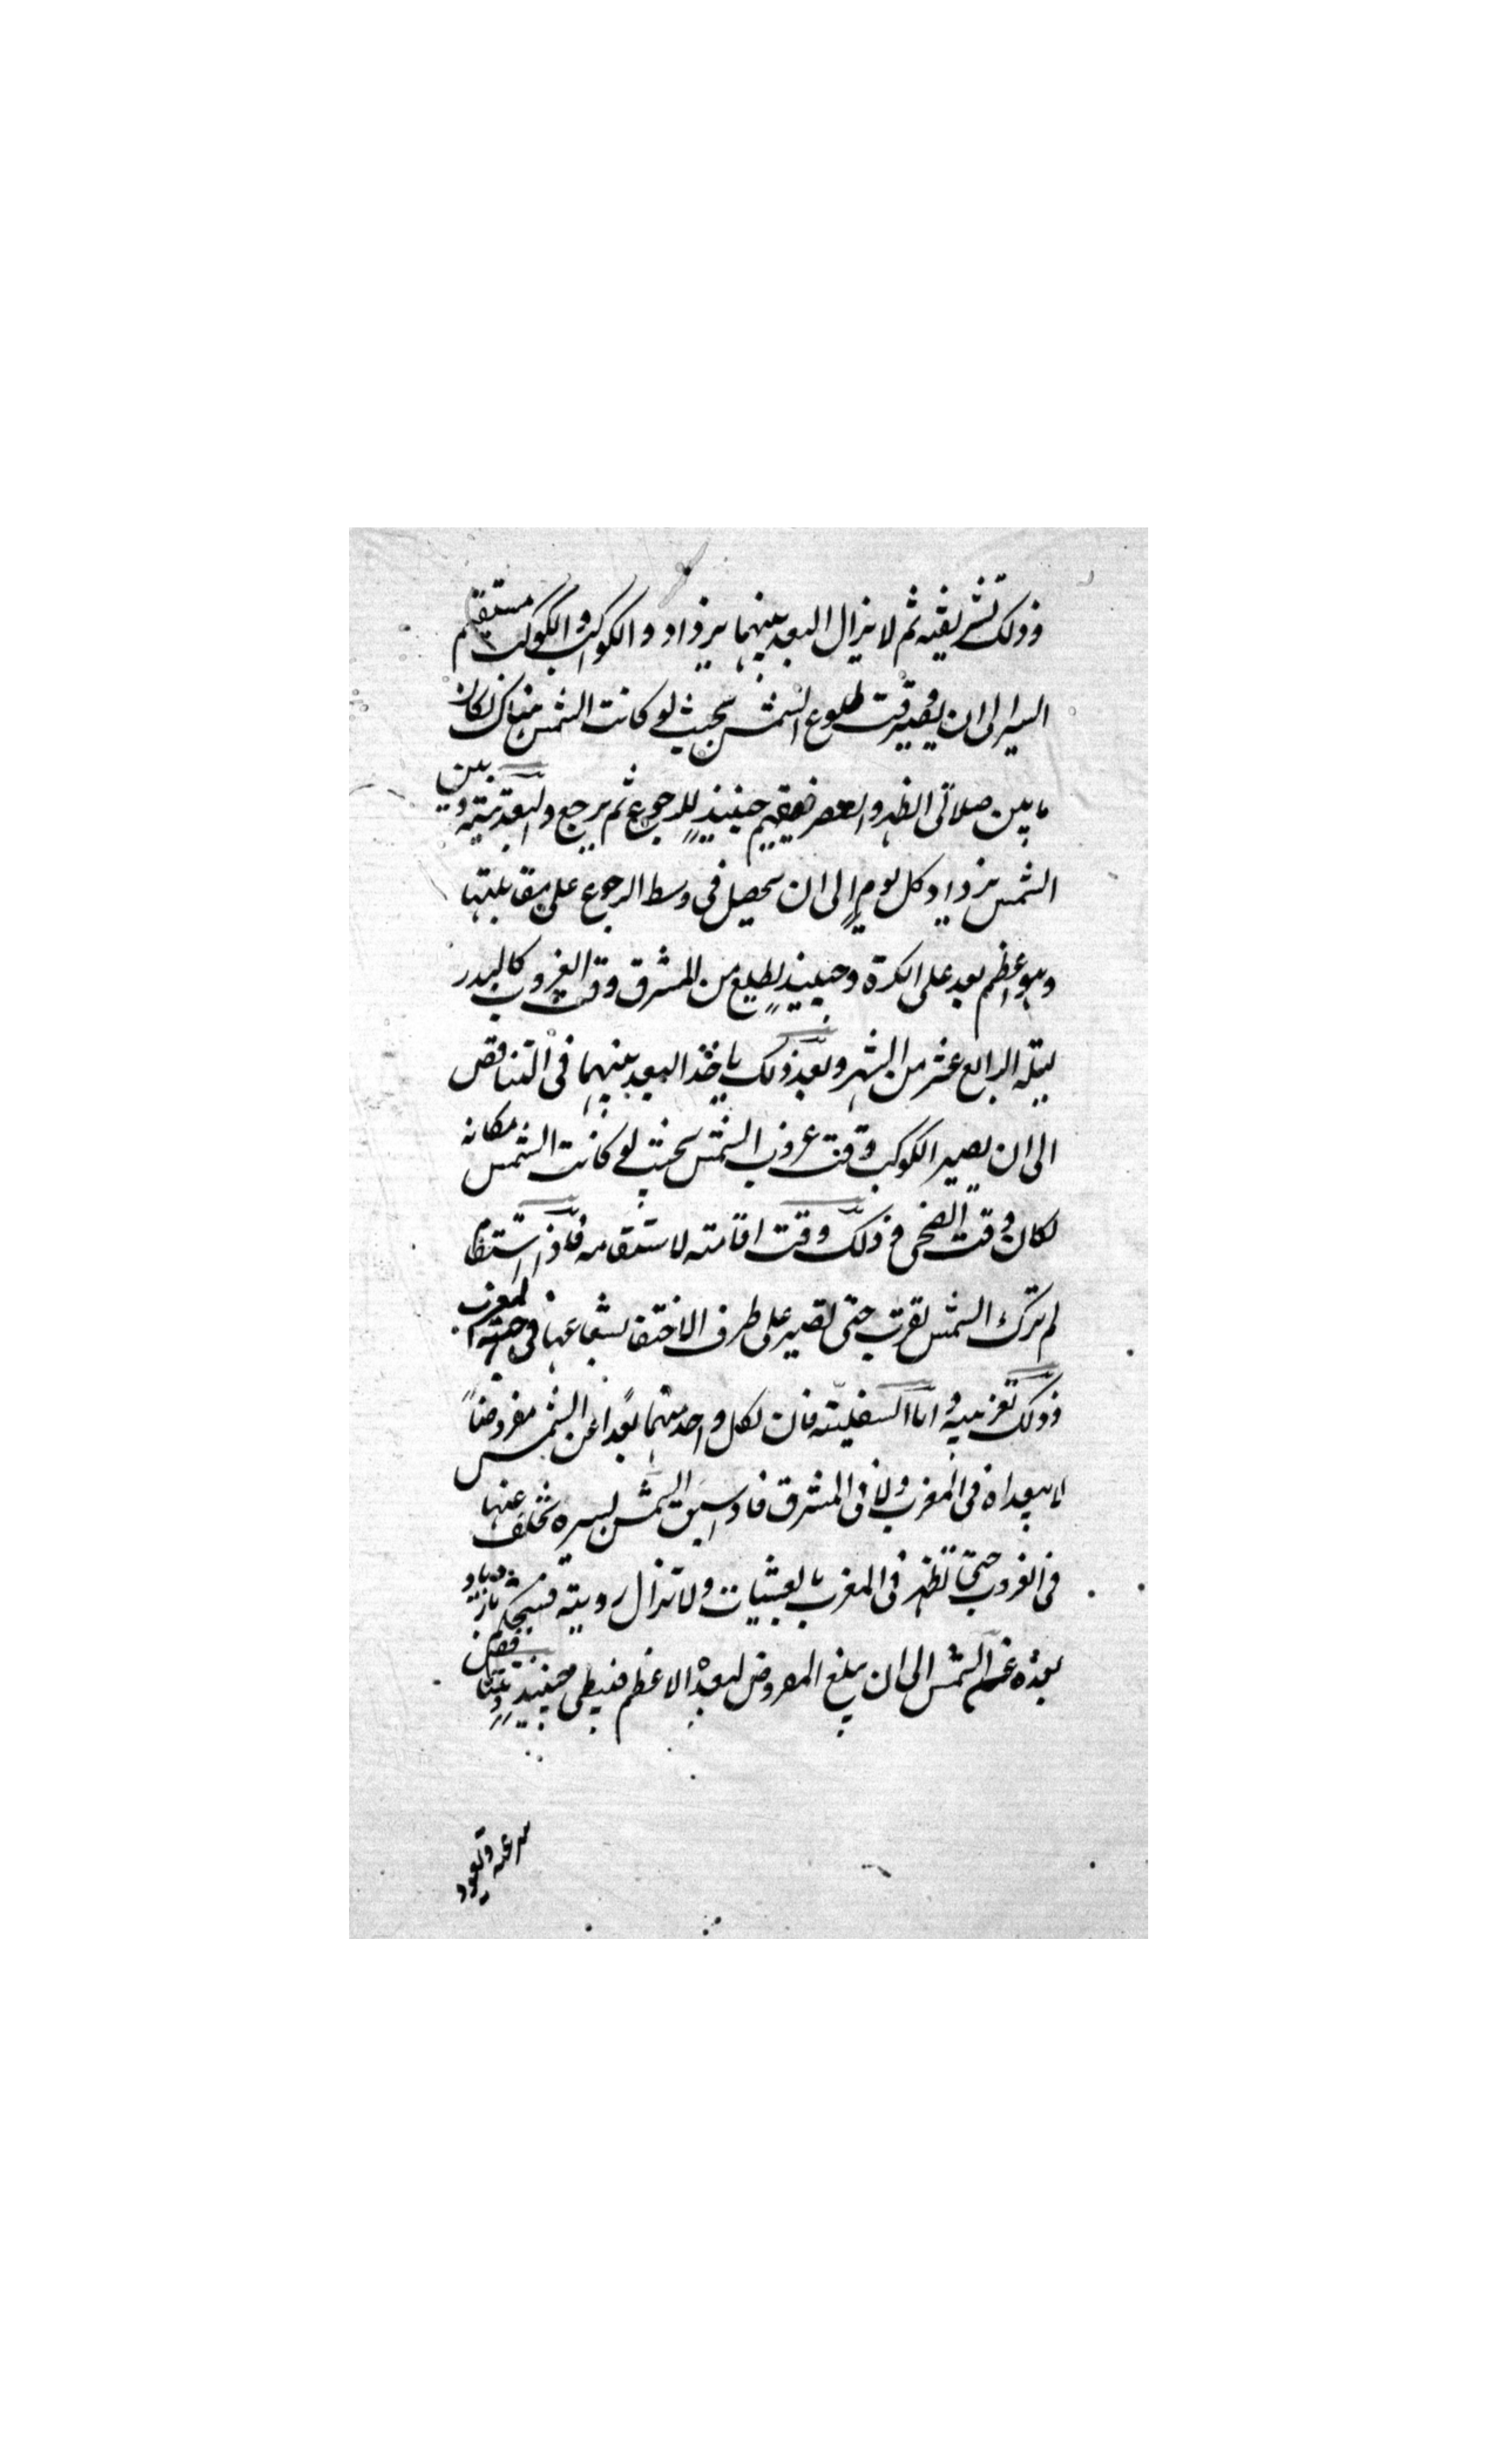 وذلك تشريقيه ثم لا يزال البعد بينهما يزداد والكواكب والكوكب مستقيم
السير الى ان يصير وقت طلوع الشمس بحيث لو كانت الشمس هناك لكان
ما بين صلاتى الظهر والعصر فيقيم حينئذ للرجوع ثم يرجع والبعد بينه وبين
الشمس يزداد كل يوم الى ان يحصل فى وسط الرجوع على مقابلتها
وهو اعظم بعد على الكرة وحينئذ يطلع من المشرق وقت الغروب كالبدر
ليلة الرابع عشر من الشهر وبعد ذلك ياخذ البعد بينهما فى التناقص
الى ان يصير الكوكب وقت غروب الشمس بحيث لو كانت الشمس مكانه
لكان وقت الضحى وذلك وقت اقامته لاستقامه فاذا استقام
لم تزل الشمس تقرب حتى تصير على طرف الاختفا بشعاعها فى جهة المغرب
وذلك تغريبيه واما السفلية فان لكل واحد منهما بعدا عن الشمس مفروضا
لا يبعداه فى المغرب ولا فى المشرق فاذا سبق الشمس بسيره تخلف عنها
فى الغروب حتى تظهر فى المغرب بالعشيات ولا تزال رويته بازدياد
بعده عن الشمس الى ان يبلغ المفروض لبعده الاعظم فيبطى حينئذ
سرعته ويعود